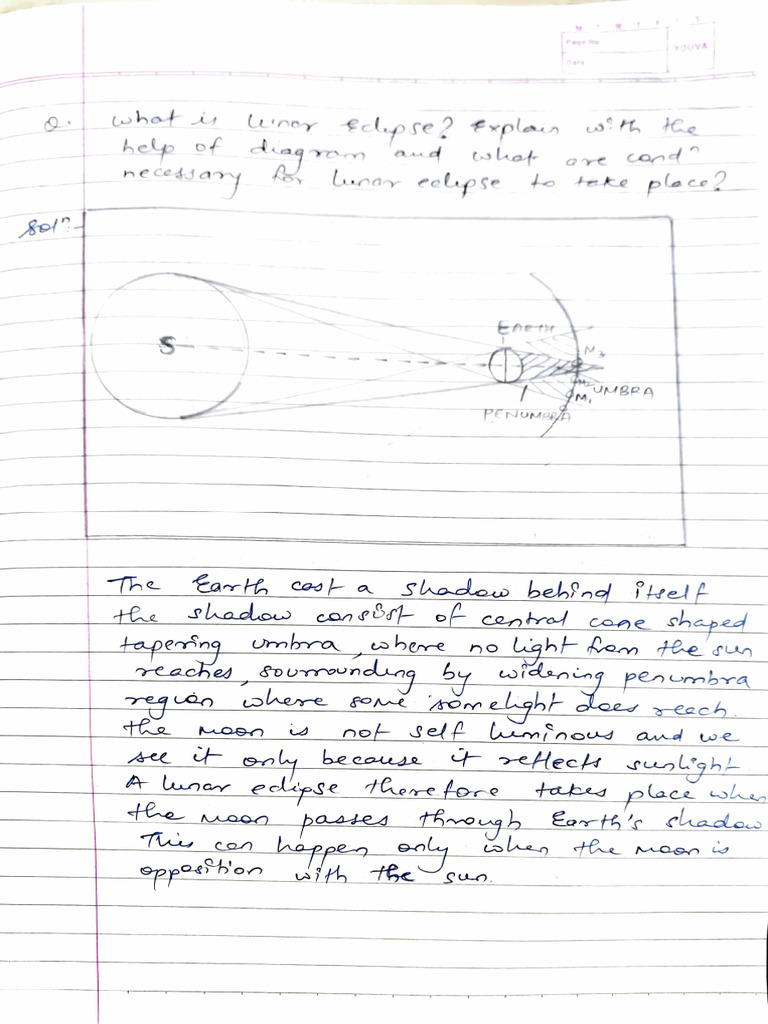 M T W T F S
Page No
YOUVA
Date
Q. What is lunar Eclipse? Explain with the
help of diagram and what are condⁿ
necessary for lunar eclipse to take place?
Solⁿ:-
S
EARTH
M3
M2
UMBRA
M1
PENUMBRA
The Earth cast a shadow behind itself
the shadow consist of central cone shaped
tapering umbra, where no light from the sun
reaches, sourrounding by widening penumbra
region where some somelight does reach.
the moon is not self luminous and we
see it only because it reflects sunlight
A lunar eclipse therefore takes place when
the moon passes through Earth's shadow
This can happen only when the moon is
opposition with the sun.